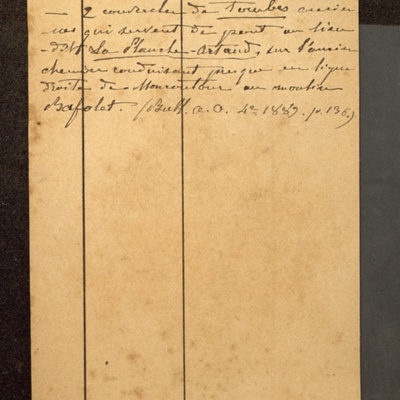 — 2 couvercles de tombes ancien
nes qui servent de pont au lieu
-dit La Planche-Artaud, sur l'ancien
chemin conduisant presque en ligne
droite de Moncontour au moulin
Bafolet. (Bull. a. O. 4e 1889. p. 136.)